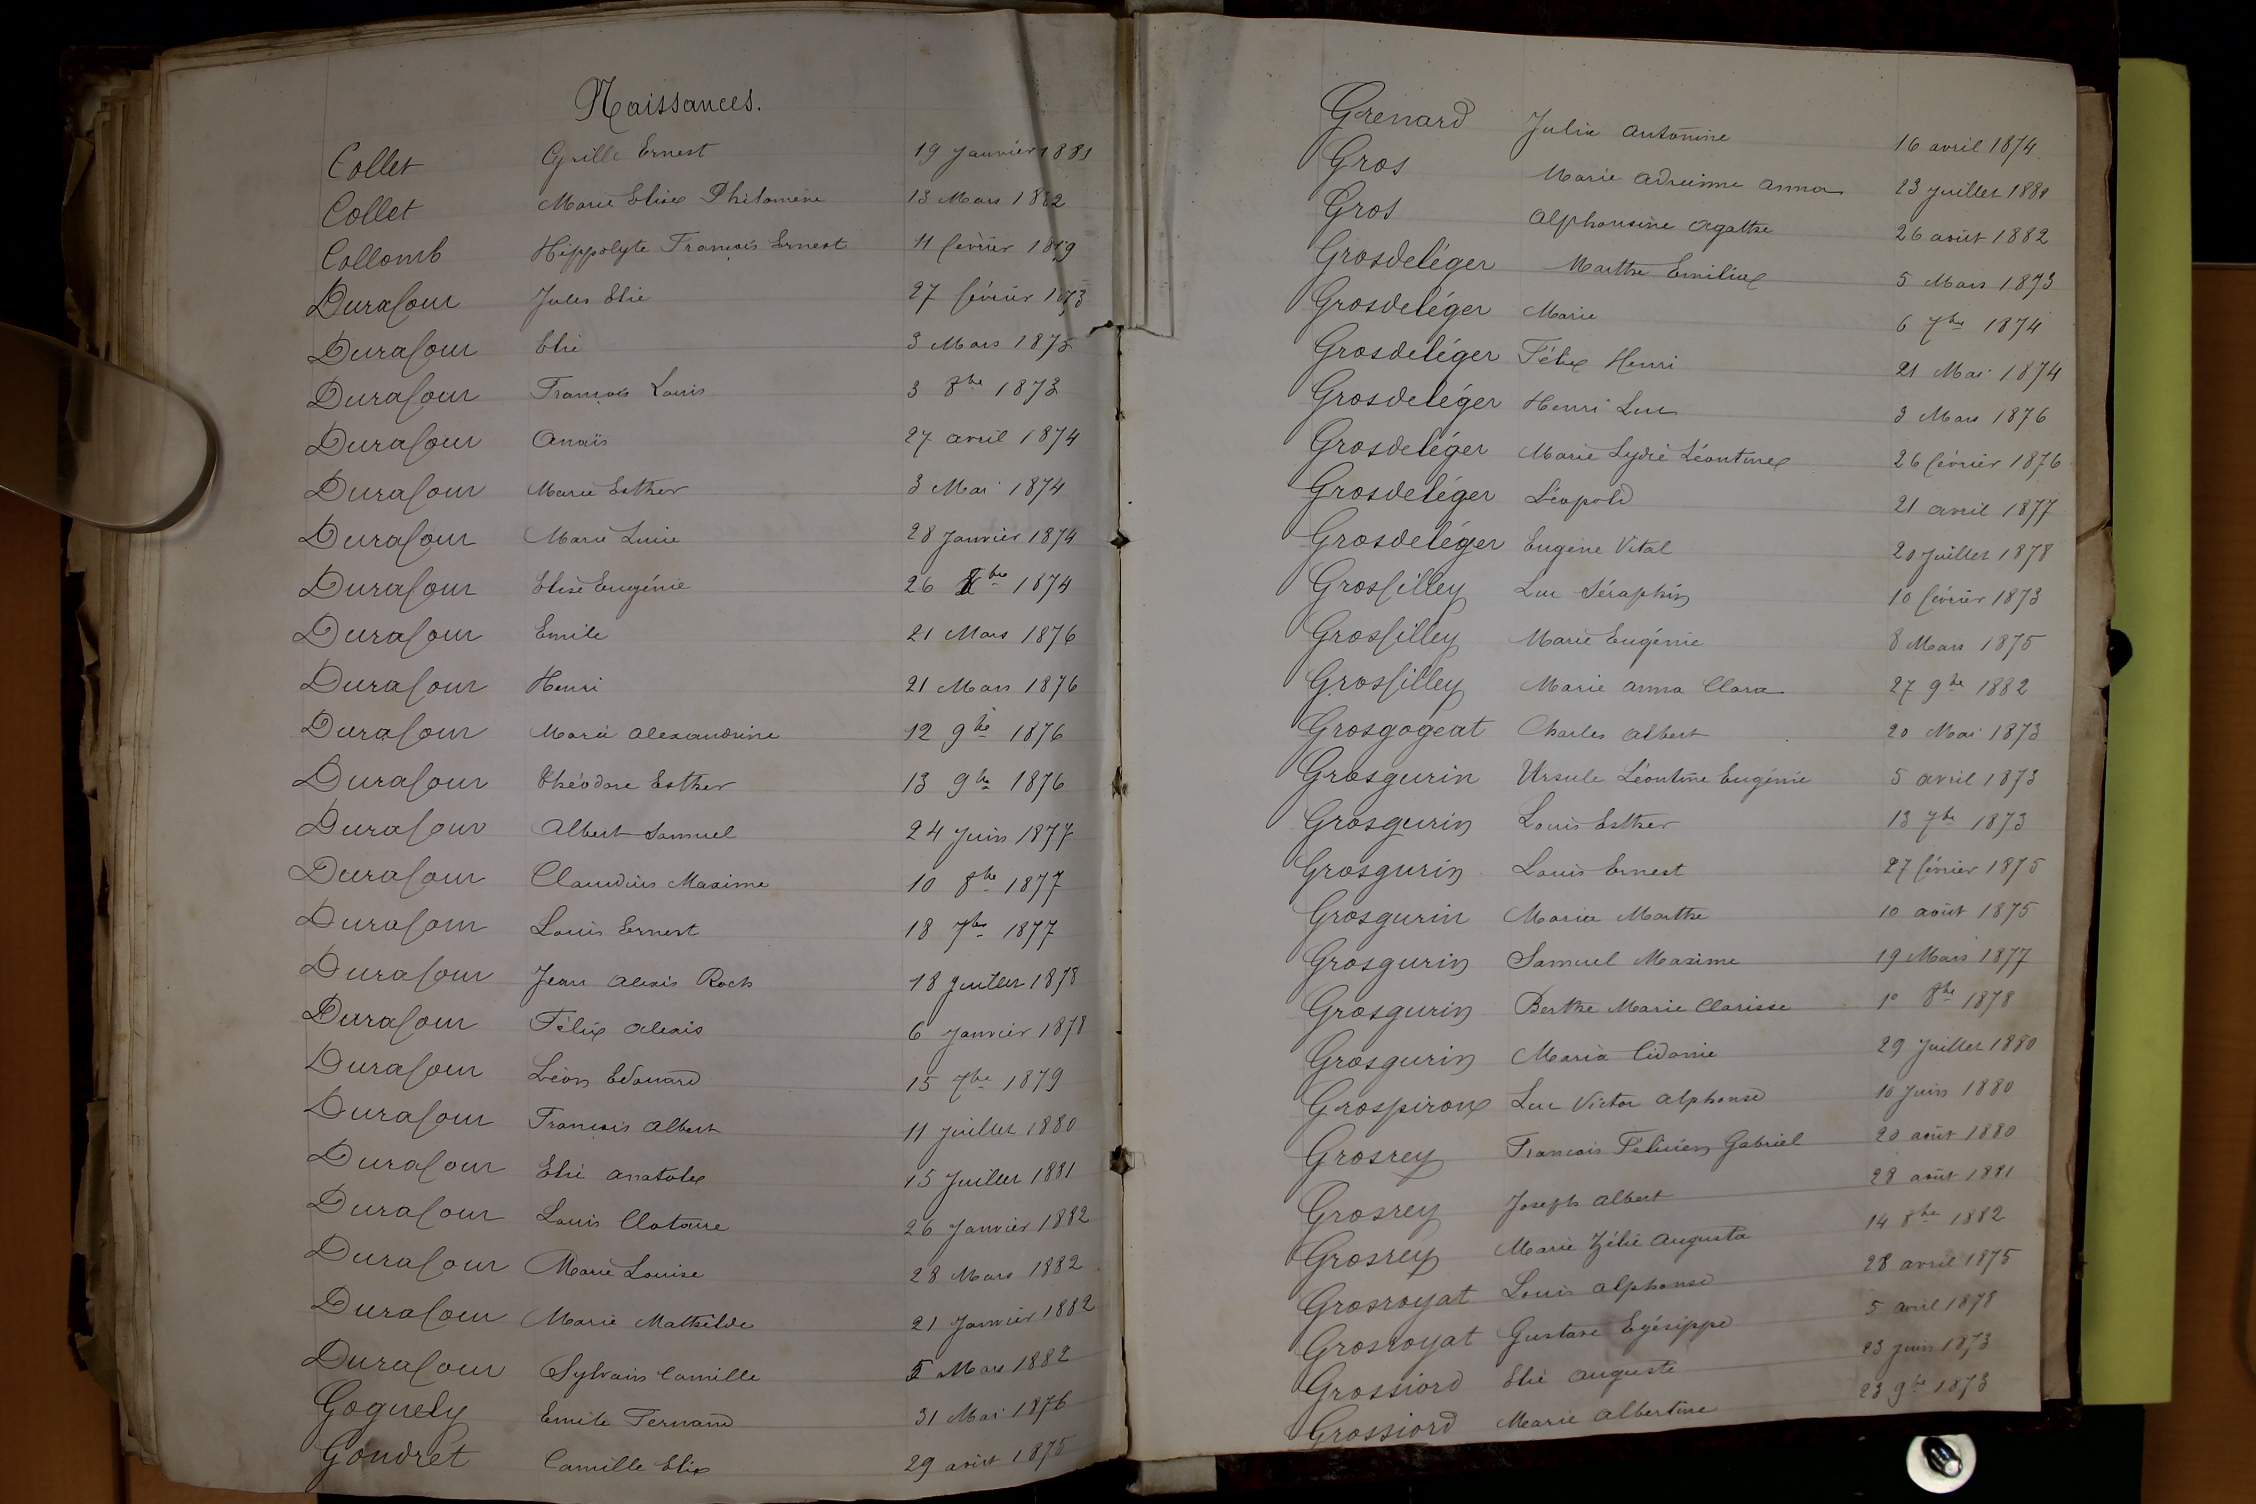 Naissances.
Collet Cyrille Ernest 19 Janvier 1881
Collet Marie Elise Philomène 13 Mars 1882
Collomb Hippolyte François Ernest 11 février 1879
Durafour Jules Elie 27 février 1873
Durafour Elie 3 Mars 1873
Durafour François Louis 3 8bre 1873
Durafour Anaïs 27 avril 1874
Durafour Marie Esther 3 Mai 1874
Durafour Marie Lucie 28 Janvier 1874
Durafour Elise Eugénie 26 bre 1874
Durafour Emile 21 Mars 1876
Durafour Henri 21 Mars 1876
Durafour Maria Alexandrine 12 9bre 1876
Durafour Théodore Esther 13 9bre 1876
Durafour Albert Samuel 24 Juin 1877
Durafour Claudius Maxime 10 8bre 1877
Durafour Louis Ernest 18 7bre 1877
Durafour Jean Alexis Roch 18 Juillet 1878
Durafour Félix Alexis 6 Janvier 1878
Durafour Léon Edouard 15 7bre 1879
Durafour François Albert 11 Juillet 1880
Durafour Elie Anatole 15 Juillet 1881
Durafour Louis Clotaire 26 Janvier 1882
Durafour Marie Louise 28 Mars 1882
Durafour Marie Mathilde 21 Janvier 1882
Durafour Sylvain Camille 5 Mars 1882
Goguely Emile Fernand 31 Mai 1876
Gondret Camille Elie 29 août 1875
Grenard Julie Antonine 16 avril 1874
Gros Marie Adrienne Anna 23 Juillet 1881
Gros Alphonsine Agathe 26 août 1882
Grosdeléger Marthe Emilie 5 Mars 1873
Grosdeléger Marie 6 7bre 1874
Grosdeléger Félix Henri 21 Mai 1874
Grosdeléger Henri Luc 3 Mars 1876
Grosdeléger Marie Lydie Léontine 26 février 1876
Grosdeléger Léopold 21 avril 1877
Grosdeléger Eugène Vital 20 Juillet 1878
Grosfilley Luc Séraphin 10 février 1873
Grosfilley Marie Eugénie 8 Mars 1875
Grosfilley Marie Anna Clara 27 9bre 1882
Grosgogeat Charles Albert 20 Mai 1873
Grosgurin Ursule Léontine Eugénie 5 avril 1873
Grosgurin Louis Esther 13 7bre 1873
Grosgurin Louis Ernest 27 février 1875
Grosgurin Maria Marthe 10 août 1875
Grosgurin Samuel Maxime 19 Mars 1877
Grosgurin Berthe Marie Clarisse 1º 8bre 1878
Grosgurin Maria Cidonie 29 Juillet 1880
Grospiron Luc Victor Alphonse 10 Juin 1880
Grosrey François Félicien Gabriel 20 août 1880
Grosrey Joseph Albert 28 août 1881
Grosrey Marie Zélie Augusta 14 8bre 1882
Grosroyat Louis Alphonse 28 avril 1875
Grosroyat Gustave Egésippe 5 avril 1878
Grossiord Elie Auguste 23 Juin 1873
Grossiord Marie Albertine 23 9bre 1873